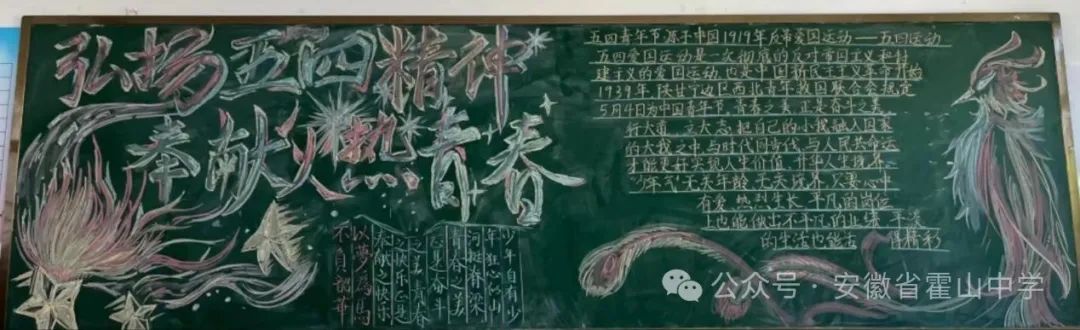 弘扬五四精神
奉献火热青春
五四青年节源于中国1919年反帝爱国运动——五四运动
五四爱国运动是一次彻底的反对帝国主义和封
建主义的爱国运动 也是中国新民主主义革命开始
1939年 陕甘宁边区西北青年救国联合会规定
5月4日为中国青年节 青春之美 正是奋斗之美
怀大爱 立大志 把自己的小我融入国家
的大我之中 与时代同奋伐 与人民共命运
才能更好实现人生价值 升华人生境界
少年气 无关年龄 无关境界 只要心中
有爱 热烈生长 平凡的岗位
也能做出不平凡的业绩 平淡
的生活也能去 精彩
少年自有少
年狂心似山
河挺脊梁
青春之美
正是奋斗
之美 青春
之快乐正是
奉献之快乐
以梦为馬
不負韶華
公众号·安徽省霍山中学